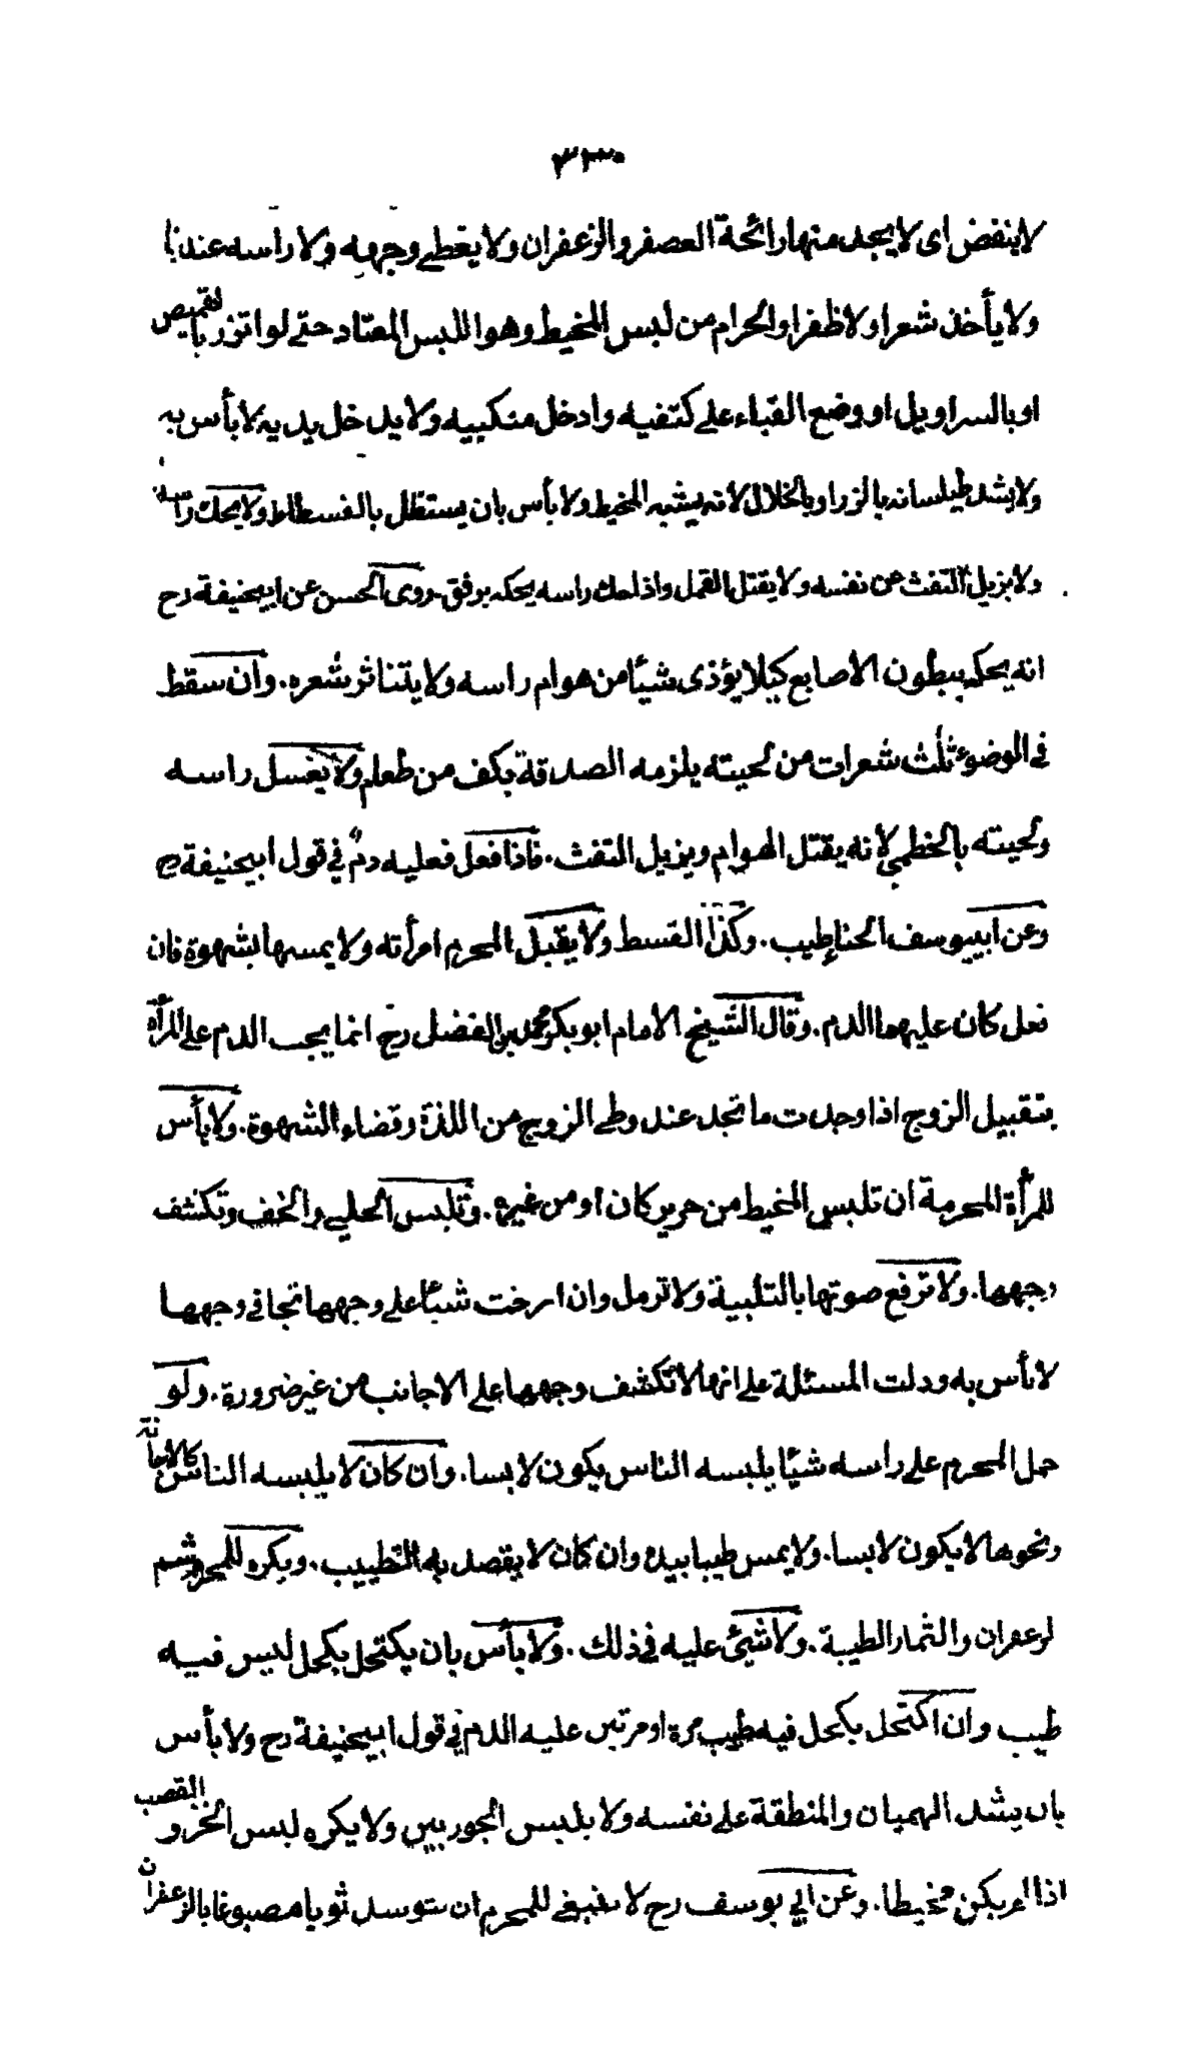 ٣٣٠
لا ينفض اى لا يجد منها رائحة العصفر والزعفران ولا يغطى وجهه ولا راسه عندنا
ولا يأخذ شعرا ولا ظفرا والحرام من لبس المخيط وهو اللبس المعتاد حتى لو اتزر بالقميص
او بالسراويل او وضع القباء على كتفيه وادخل منكبيه ولا يدخل يديه لا بأس به
ولا يشد طيلسانه بالزر او بالخلال لانه يشبه المخيط ولا بأس بان يستظل بالفسطاط ولا يحك راسه
ولا يزيل التفث عن نفسه ولا يقتل القمل واذا حك راسه يحكه برفق. روى الحسن عن ابيحنيفة رح
انه يحكه ببطون الاصابع كيلا يؤذى شيئا من هوام راسه ولا يتناثر شعره. وان سقط
فى الوضوء ثلث شعرات من لحيته يلزمه الصدقة بكف من طعام ولا يغسل راسه
ولحيته بالخطمى لانه يقتل الهوام ويزيل التفث. فاذا فعل فعليه دم فى قول ابيحنيفة رح
وعن ابييوسف الحنا طيب. وكذا القسط ولا يقبل المحرم امرأته ولا يمسها بشهوة فان
فعل كان عليهما الدم. وقال الشيخ الامام ابو بكر محمد بن الفضل رح انما يجب الدم على المرأة
بتقبيل الزوج اذا وجدت ما تجد عند وطى الزوج من اللذة وقضاء الشهوة. ولا بأس
للمرأة المحرمة ان تلبس المخيط من حرير كان او من غيره. وتلبس الحلى والخف وتكشف
وجهها. ولا ترفع صوتها بالتلبية ولا ترمل وان ارخت شيئا على وجهها تجافى وجهها
لا بأس به ودلت المسئلة على انها لا تكشف وجهها على الاجانب من غير ضرورة. ولو
حمل المحرم على راسه شيئا يلبسه الناس يكون لابسا. وان كان لا يلبسه الناس كالاجانة
ونحوها لا يكون لابسا. ولا يمس طيبا بيده وان كان لا يقصد به التطييب. ويكره للمحرم شم
الزعفران والثمار الطيبة. ولا شئ عليه فى ذلك. ولا بأس بان يكتحل بكحل ليس فيه
طيب وان اكتحل بكحل فيه طيب مرة او مرتين عليه الدم فى قول ابيحنيفة رح ولا بأس
بان يشد الهميان والمنطقة على نفسه ولا يلبس الجوربين ولا يكره لبس الخز والقصب
اذا لم يكن مخيطا. وعن ابى يوسف رح لا ينبغى للمحرم ان يتوسد ثوبا مصبوغا بالزعفران